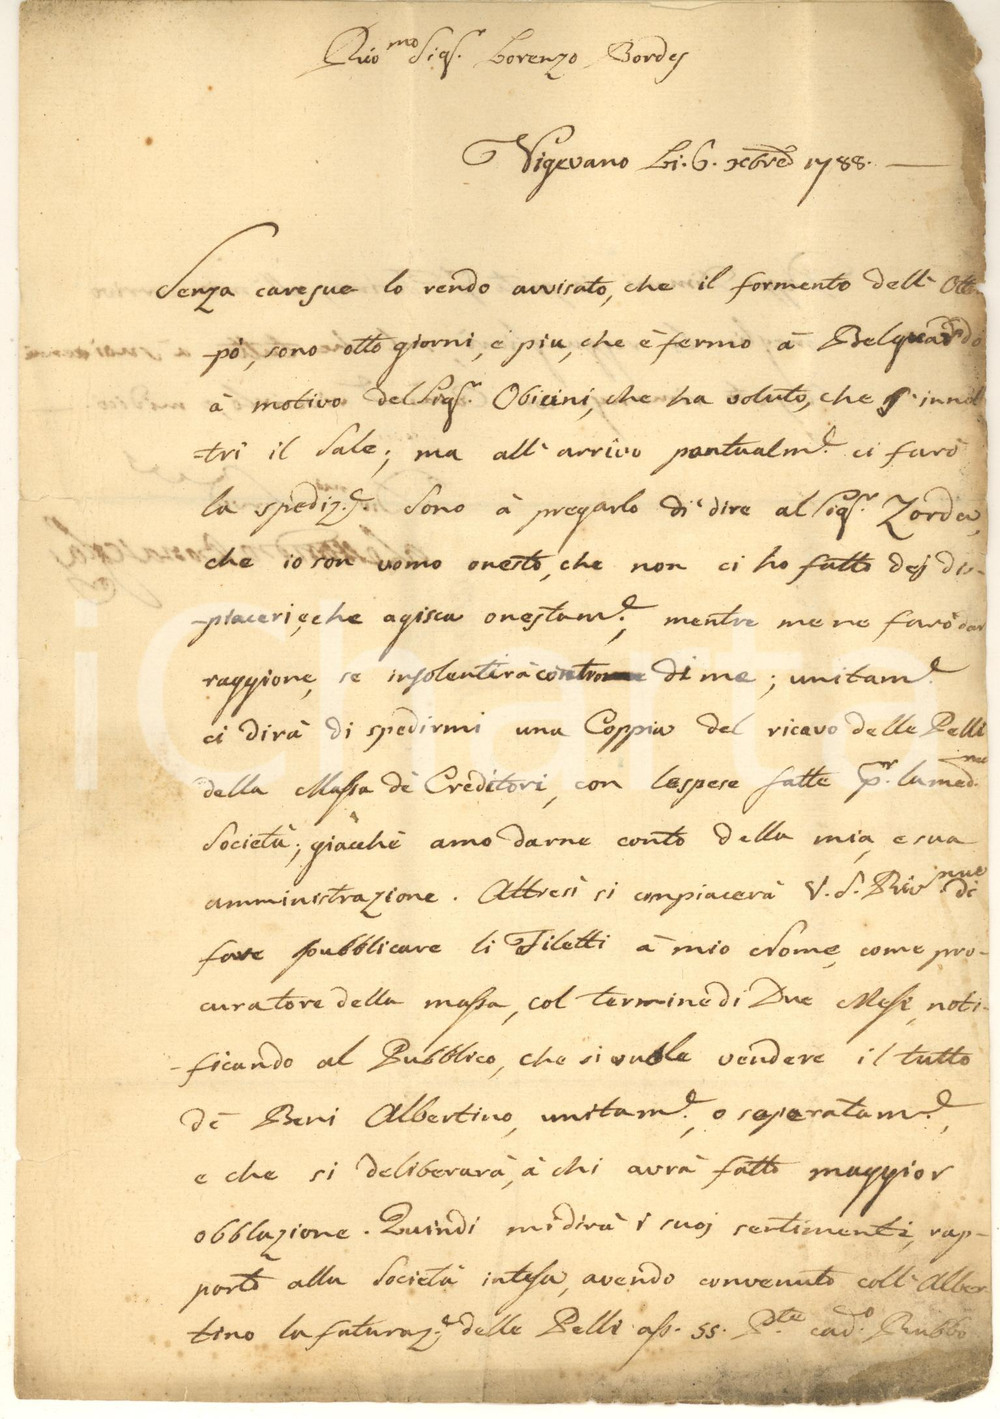 Riv.mo Sig.r Lorenzo Bordes
Vigevano li. 6. xbre 1788.
Senza caresue lo rendo avvisato, che il formento dell'
pò, sono otto giorni, e piu, che è fermo à Belguardo
à motivo del Sig.r Obicini, che ha voluto, che s'innol
=tri il Sale; ma all'arrivo pontualm.e ci farò
la spediz.e. Sono à pregarlo di dire al Sig.r Zorda,
che io son uomo onesto, che non ci ho fatto dej dis-
-piaceri, e che agisca onestam.e, mentre me ne farò dar
raggione, se insolentirà contro di me; unitam.e
ci dirà di spedirmi una Coppia del ricavo delle Pelli
della Massa de Creditori, con le spese fatte p.r la med.ma
Società; giacchè amo darne conto della mia, e sua
amministrazione. Altresì si compiacerà V.S. Riv.ma di
fare pubblicare li Filetti à mio Nome, come pro-
curatore della massa, col termine di Due Mesi, noti-
-ficando al Pubblico, che si vuole vendere il tutto
de Beni Albertino, unitam.e, o separatam.e,
e che si deliberarà, à chi avrà fatto maggior
obblazione. Quindi mi dirà i suoj sentimenti, rap-
porto alla Società intesa, avendo convenuto coll'Alber
tino la faturaz.e delle Pelli ass. 55. P.te cad.o Rubbo
iChante